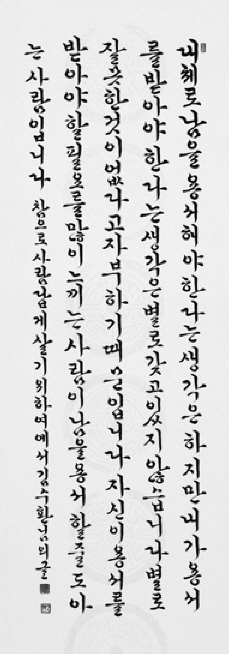 대체로 남을 용서해야 한다는 생각은 하지만 내가 용서
를 받아야 한다는 생각은 별로 갖고 있지 않습니다 별로
잘못한것이 없다고 자부하기 때문입니다 자신이 용서를
받아야 할 필요를 많이 느끼는 사람이 남을 용서할 줄도 아
는 사람입니다 참으로 사람답게 살기 위하여에서 김수환님의 글